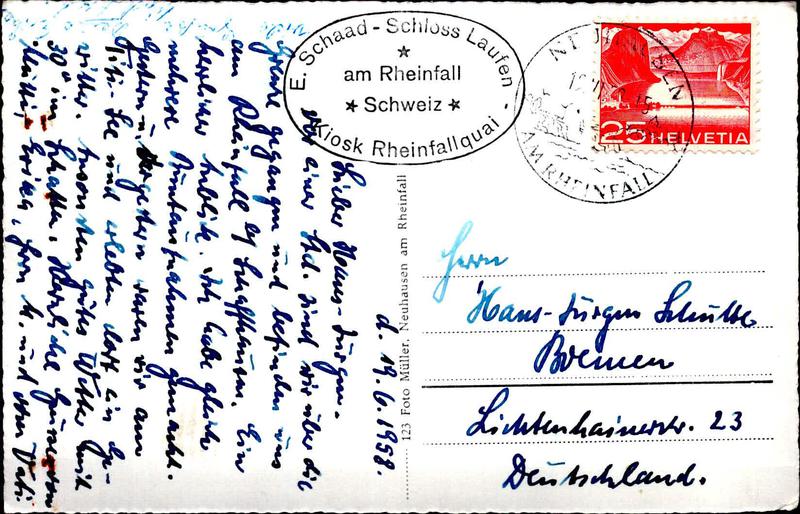 E. Schaad - Schloss Laufen
am Rheinfall
Schweiz
Kiosk Rheinfallquai
NEUHAUSEN
AM RHEINFALL
25 HELVETIA
d. 19.6.1958.
Lieber Hans-Jürgen.
Vor einer Std. sind wir über die
Grenze gegangen und befinden uns
am Rheinfall bei Schaffhausen. Ein
herrlicher Anblick. Ich habe gleich
mehrere Buntaufnahmen gemacht.
Gestern u. Vorgestern waren wir am
Titi-See und erlebten dort ein Ge-
witter. Ansonsten gutes Wetter mit
30° im Schatten. Herzliche Grüsse von
Mutti, Erika, Frau K. und Deinem Vati.
viele Grüße
123 Foto Müller, Neuhausen am Rheinfall
Herrn
Hans-Jürgen Schulte
Bremen
Lichtenhainerstr. 23
Deutschland.